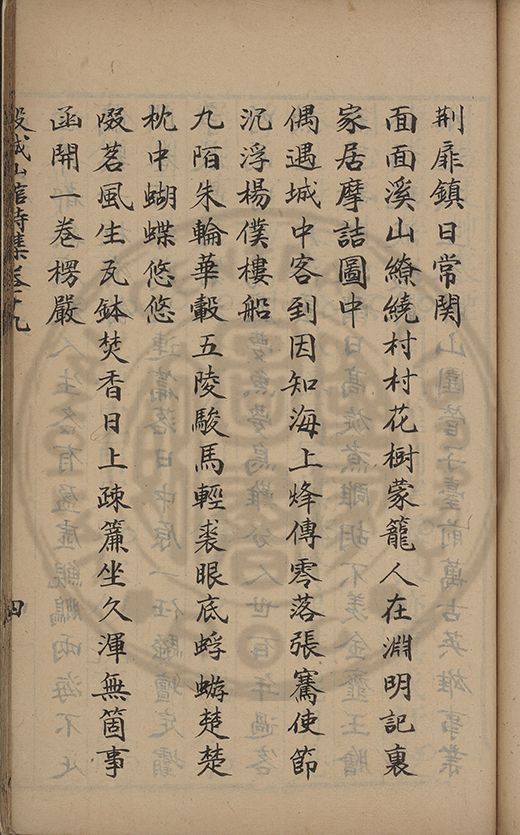 荆扉鎮日常関
面面溪山繚繞村村花樹蒙籠人在淵明記裏
家居摩詰圖中
偶遇城中客到因知海上烽傳零落張騫使節
沉浮楊僕樓船
九陌朱輪華轂五陵駿馬輕裘眼底蜉蝣楚楚
枕中蝴蝶悠悠
啜茗風生瓦鉢焚香日上疎簾坐久渾無箇事
函開一卷楞嚴
穀城山館詩集卷十九
四